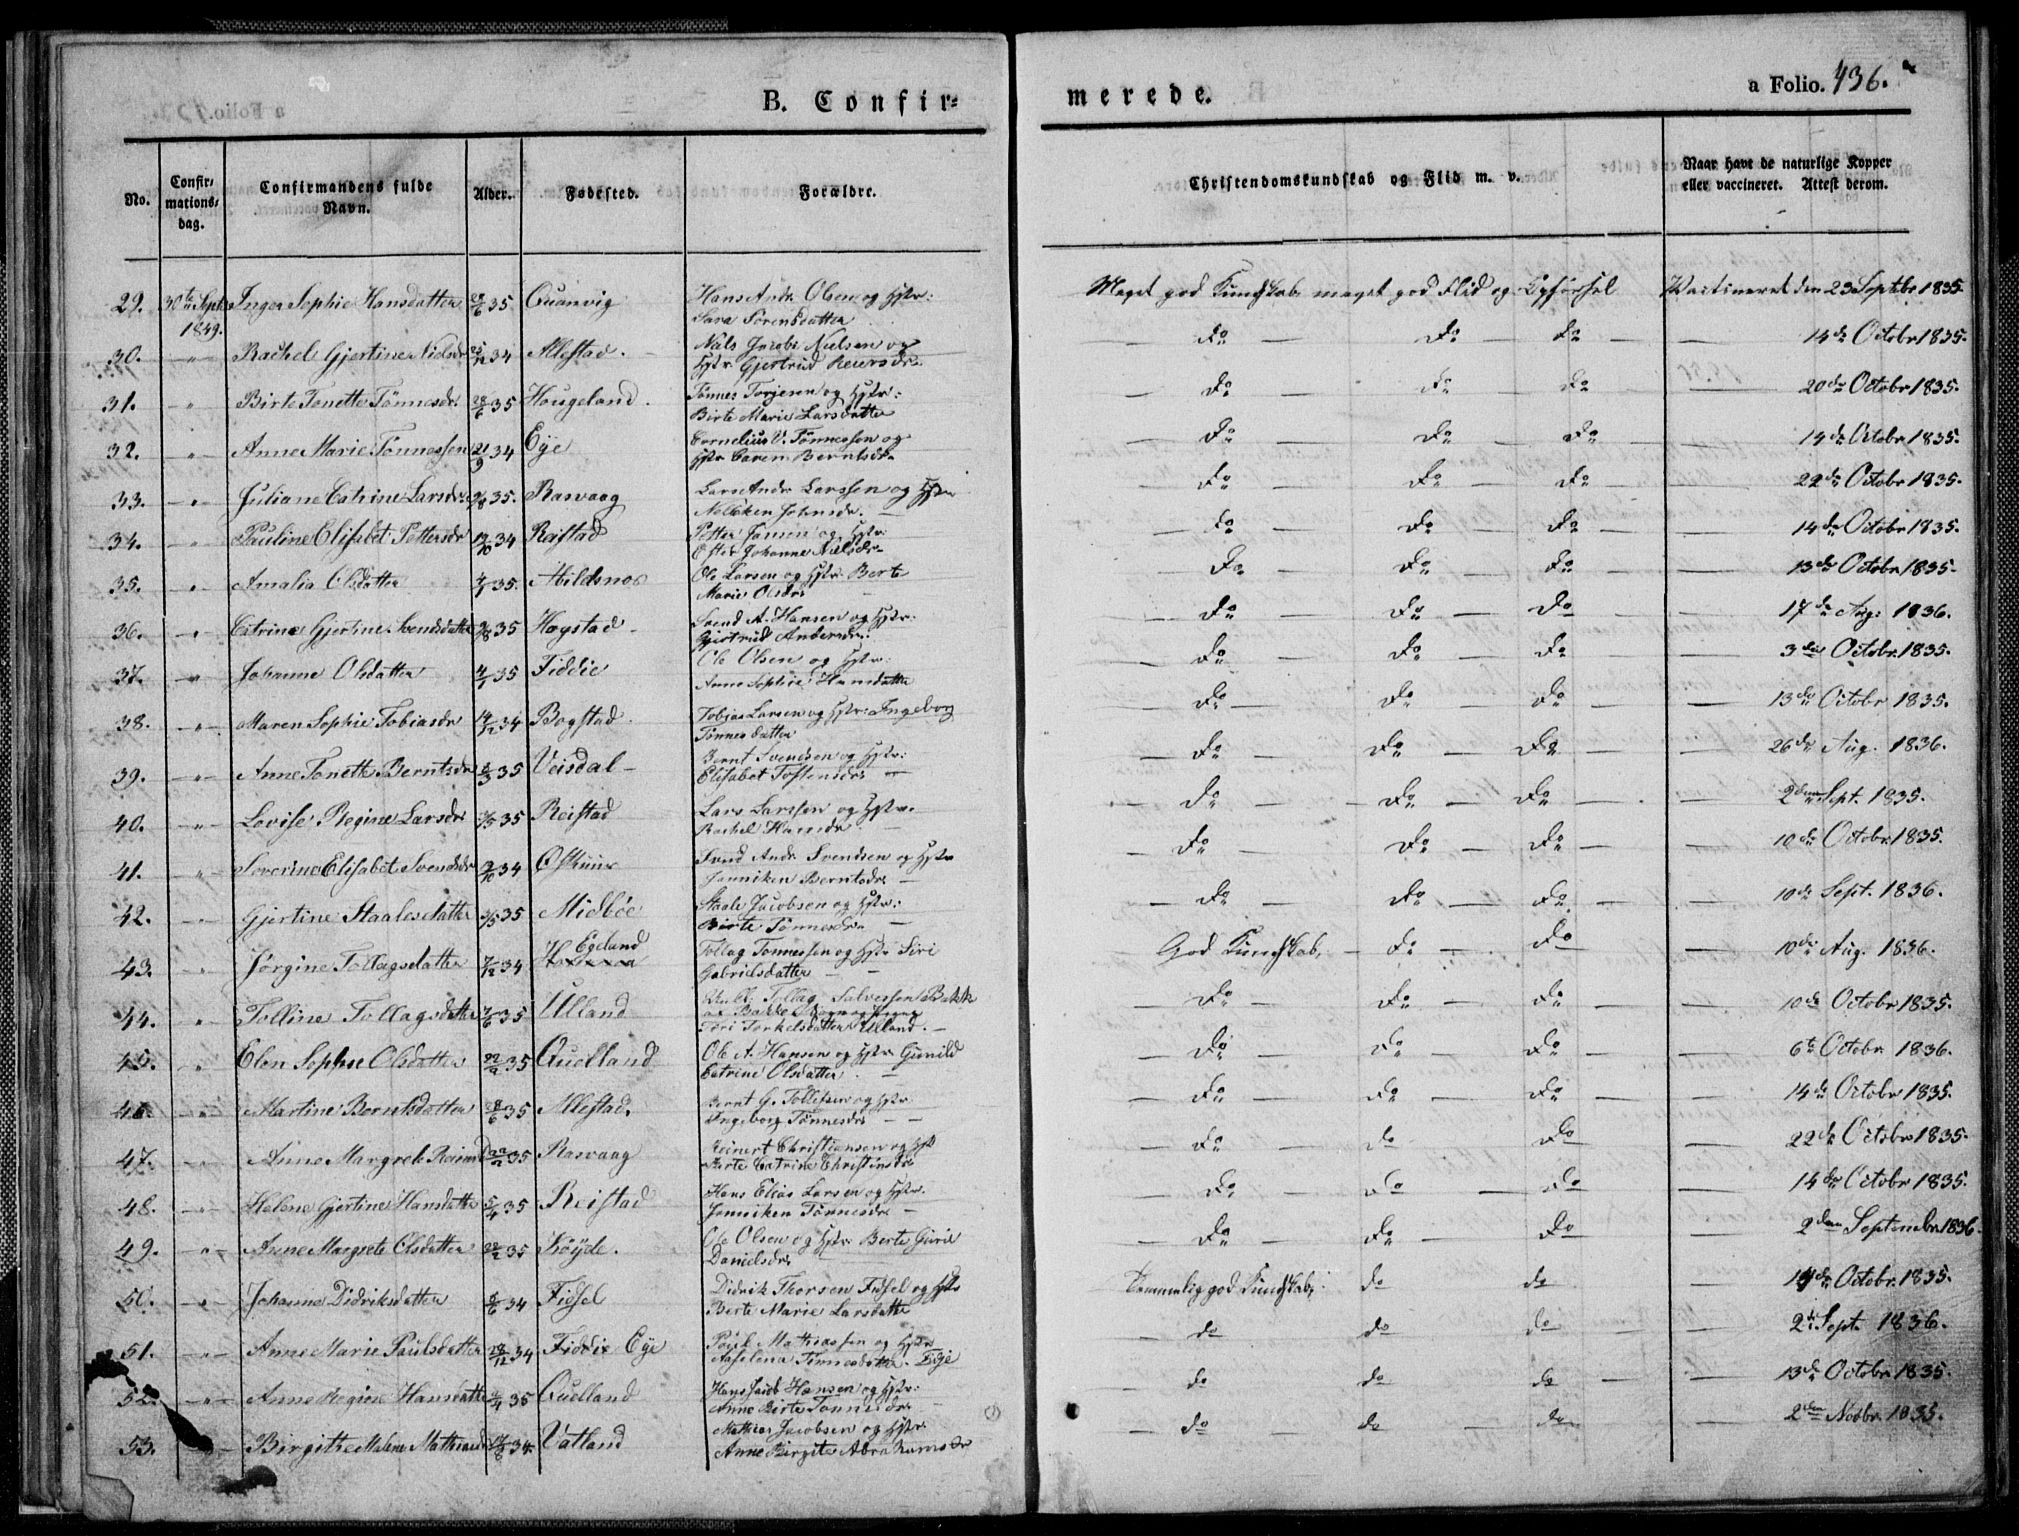 B. Confir=
merede.
a Folio. 436.
No.
Confir=
mations=
dag.
Confirmandens fulde
Navn.
Alder.
Fødested.
Forældre.
Christendomskundskab og Flid m. v.
Naar havt de naturlige Kopper
eller vaccineret. Attest derom.
29. 30te Sept. 1849. Inger Sophie Hansdatter 35 Quanvig Hans Andr. Olsen og Hstr: Sara Sørensdatter Meget god Kundskab meget god Flid og Opførsel Vaccineret den 23 Septbr 1835.
30. " Rachel Gjertine Nielsdr 34 Allestad. Niels Jacob Nielsen og Hstr. Gjertrud Reiersdr. Do Do Do 14de Octobr 1835.
31. " Birte Tonette Tønnesdr. 28/6 35 Hougeland. Tønnes Torjesen og Hstr: Birte Marie Larsdatter Do Do Do 20de Octobr 1835.
32. " Anne Marie Tønnessen 21/9 34 Eye Cornelius V. Tønnessen og Hstr Caren Berntsdr. Do Do Do 14de Octobr 1835.
33. " Juliane Catrine Larsdr. 35. Rasvaag Lars Andr Larssen og Hstr Nelliken Johnsdr. Do Do Do 22de Octobr 1835.
34. " Pauline Elisabet Pettersdr 34 Reistad Petter Jansen og Hstr: Ester Johanne Nielsdr. Do Do Do 14de Octobr 1835.
35. " Amalia Olsdatter 35. Abildsnes Ole Larsen og Hstr. Berte Marie Olsdr Do Do Do 13de Octobr 1835.
36. " Catrine Gjertine Svendsdatter 35 Høystad Svend A. Hansen og Hstr: Gjertrud Andersdr. Do Do Do 17de Aug: 1836.
37. " Johanne Olsdatter 35 Fiddie Ole Olsen og Hstr. Anne Sophie Hansdatter Do Do Do 3die Octobr. 1835.
38. " Maren Sophie Tobiasdr 14/12 34 Bogstad. Tobias Larsen og Hstr: Ingeborg Tønnesdatter Do Do Do 13de Octobr 1835.
39. " Anne Tonette Berntsdr 35 Veisdal Bernt Svendsen og Hstr: Elisabet Tostensdr. Do Do Do 26de Aug. 1836.
40. " Lovise Regine Larsdr 35 Reistad Lars Larssen og Hstr. Rachel Hansdr. Do Do Do 2den Sept. 1835.
41. " Severine Elisabet Svendsdr 34 Svend Andr. Svendsen og Hstr Jenniken Berntsdr. Do Do Do 10de Octobr. 1835.
42. " Gjertine Staalesdatter 35 Midbøe Staale Jacobsen og Hstr: Birte Tønnesdr. Do Do Do 10de Sept. 1836.
43. " Jørgine Tollagsdatter 7/12 34 Egeland Tollag Tønnessen og Hstr Siri Gabrielsdatter God Kundskab, Do Do 10de Aug. 1836.
44. " Tolline Tollagsdatter 35 Ulland Tollag Salvessen Bakke Tori Torkelsdatter Ulland. Do Do Do 10de Octobr 1835.
45. " Elen Sophie Olsdatter 35 Quelland Ole A. Hansen og Hstr Gunild Catrine Olsdatter. Do Do Do 6te Octobr 1836.
46. " Martine Berntsdatter 35 Allestad. Bernt G. Tollefsen og Hstr Ingeborg Tønnesdr Do Do Do 14de Octobr 1835.
47. " Anne Margrete 35 Rasvaag Reinert Christiansen og Hst Birte Catrine Do Do Do 22de Octobr 1835.
48. " Helene Gjertine Hansdatter 5/4 35 Reistad Hans Elias Larsen og Hstr. Jenniken Tønnesdr. Do Do Do 14de Octobr 1835.
49. " Anne Margrete Olsdatter 35 Ole Olsen og Hstr Berte Guri Danielsdr. Do Do Do 2den Septembr 1836
50. " Johanne Didriksdatter 34 Fidsel Didrik Thorsen Fidsel og Hstr Berte Marie Larsdatter Temmelig god Kundskab, do do 14de Octobr. 1835.
51. " Anne Marie Paulsdatter 28/12 34 Fiddie Eye Mathiassen og Hstr Tønnesdatter. Eye do do do 2d Sept. 1836.
52. " Anne Regine Hansdatter 35 Quelland Hans Jacob Hansen og Hstr. Anne Birte Tønnesdr. do do do 13de Octobr 1835.
53. " Birgithe Malene 34 Vatland Mathias Jacobsen og Hstr. Anne Birgite Abrahamsdr do do do 2den Novbr. 1835.